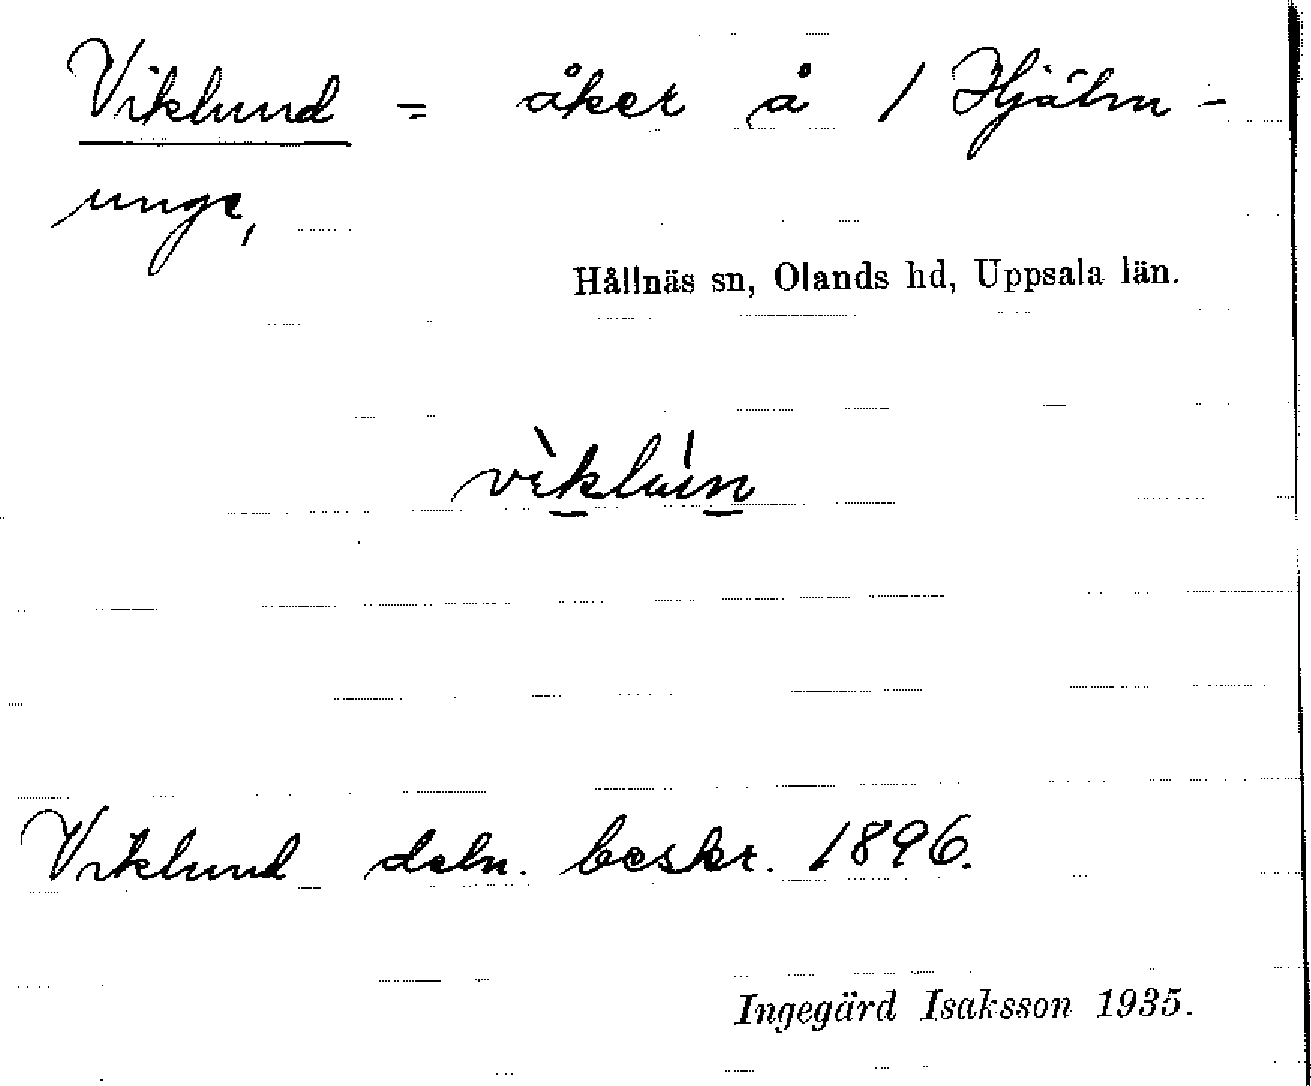 Viklund = åker å 1 Hjälm-
unge,
Hållnäs sn, Olands hd, Uppsala län.
Viklund deln. beskr. 1896.
Ingegärd Isaksson 1935.